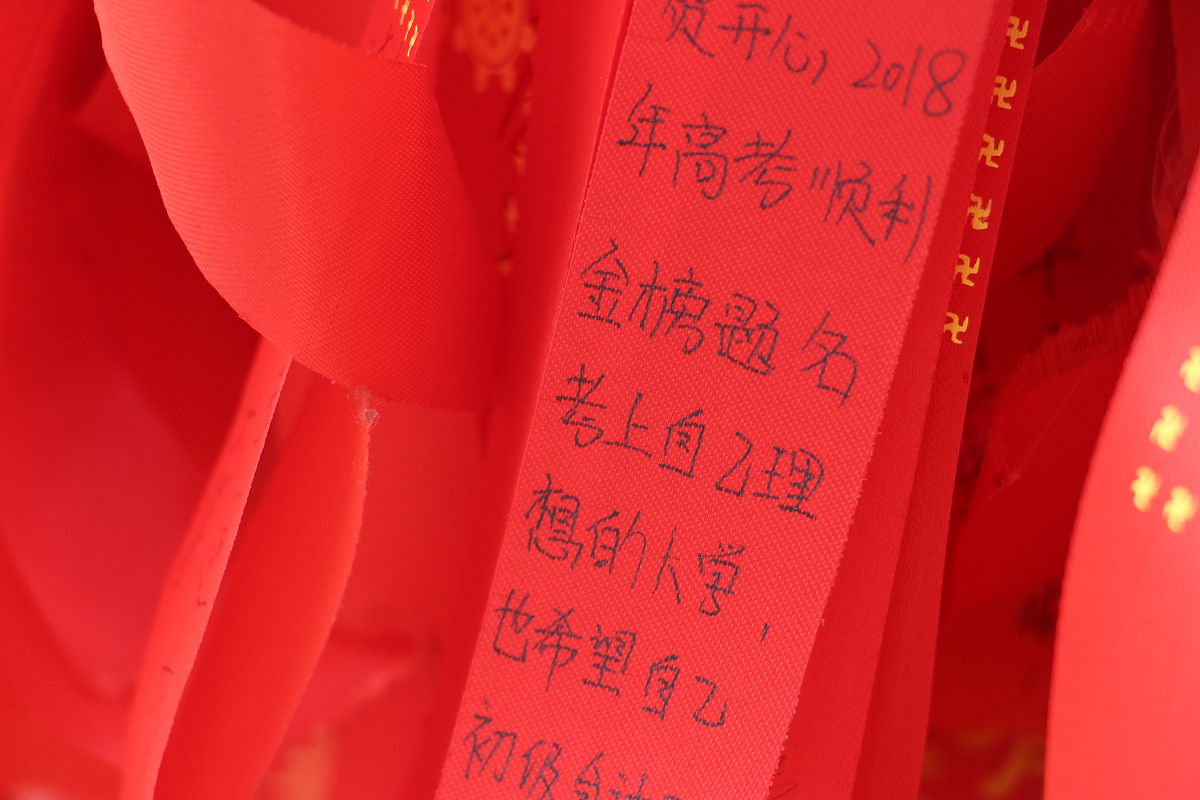 开心, 2018
年高考"顺利
金榜题名
考上自己理
想的大学,
也希望自己
初级会计